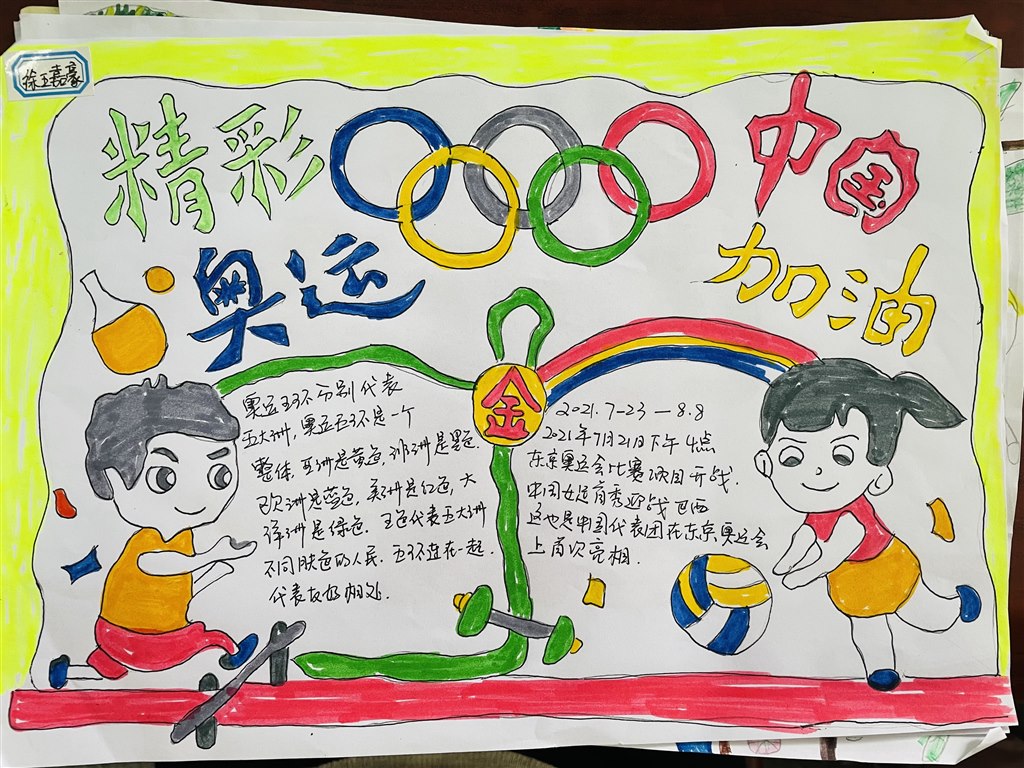 徐玉嘉豪
精彩
奥运
中国
加油
金
奥运五环分别代表
五大洲,奥运五环是一个
整体,亚洲是黄色,非洲是黑色.
欧洲是蓝色,美洲是红色,大
洋洲是绿色.五色代表五大洲
不同肤色的人民.五环连在一起.
代表友好相处.
2021.7-23—8.8
2021年7月21日下午4点
东京奥运会比赛项目开战.
中国女足首秀迎战巴西
这也是中国代表团在东京奥运会
上首次亮相.